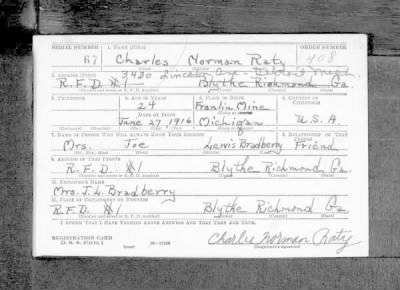 SERIAL NUMBER 1. NAME (Print) ORDER NUMBER
87 Charles Norman Raty 408
(First) (Middle) (Last)
2. ADDRESS (Print) 3420 Lincoln Ave
R.F.D. #1 Blythe Richmond Ga
3. TELEPHONE 4. AGE IN YEARS 5. PLACE OF BIRTH 6. COUNTRY OF CITIZENSHIP
24 Franlin Mine
DATE OF BIRTH
June 27, 1916 Michigan U.S.A.
7. NAME OF PERSON WHO WILL ALWAYS KNOW YOUR ADDRESS 8. RELATIONSHIP OF THAT PERSON
Mrs. Joe Lewis Bradberry Friend
(Mr., Mrs., Miss) (First) (Middle) (Last)
9. ADDRESS OF THAT PERSON
R.F.D. #1 Blythe Richmond Ga.
10. EMPLOYER'S NAME
Mrs. J.L. Bradberry
11. PLACE OF EMPLOYMENT OR BUSINESS
R.F.D. #1 Blythe Richmond Ga
I AFFIRM THAT I HAVE VERIFIED ABOVE ANSWERS AND THAT THEY ARE TRUE.
REGISTRATION CARD
D.S.S. FORM 1
Charles Norman Raty
(Registrant's signature)